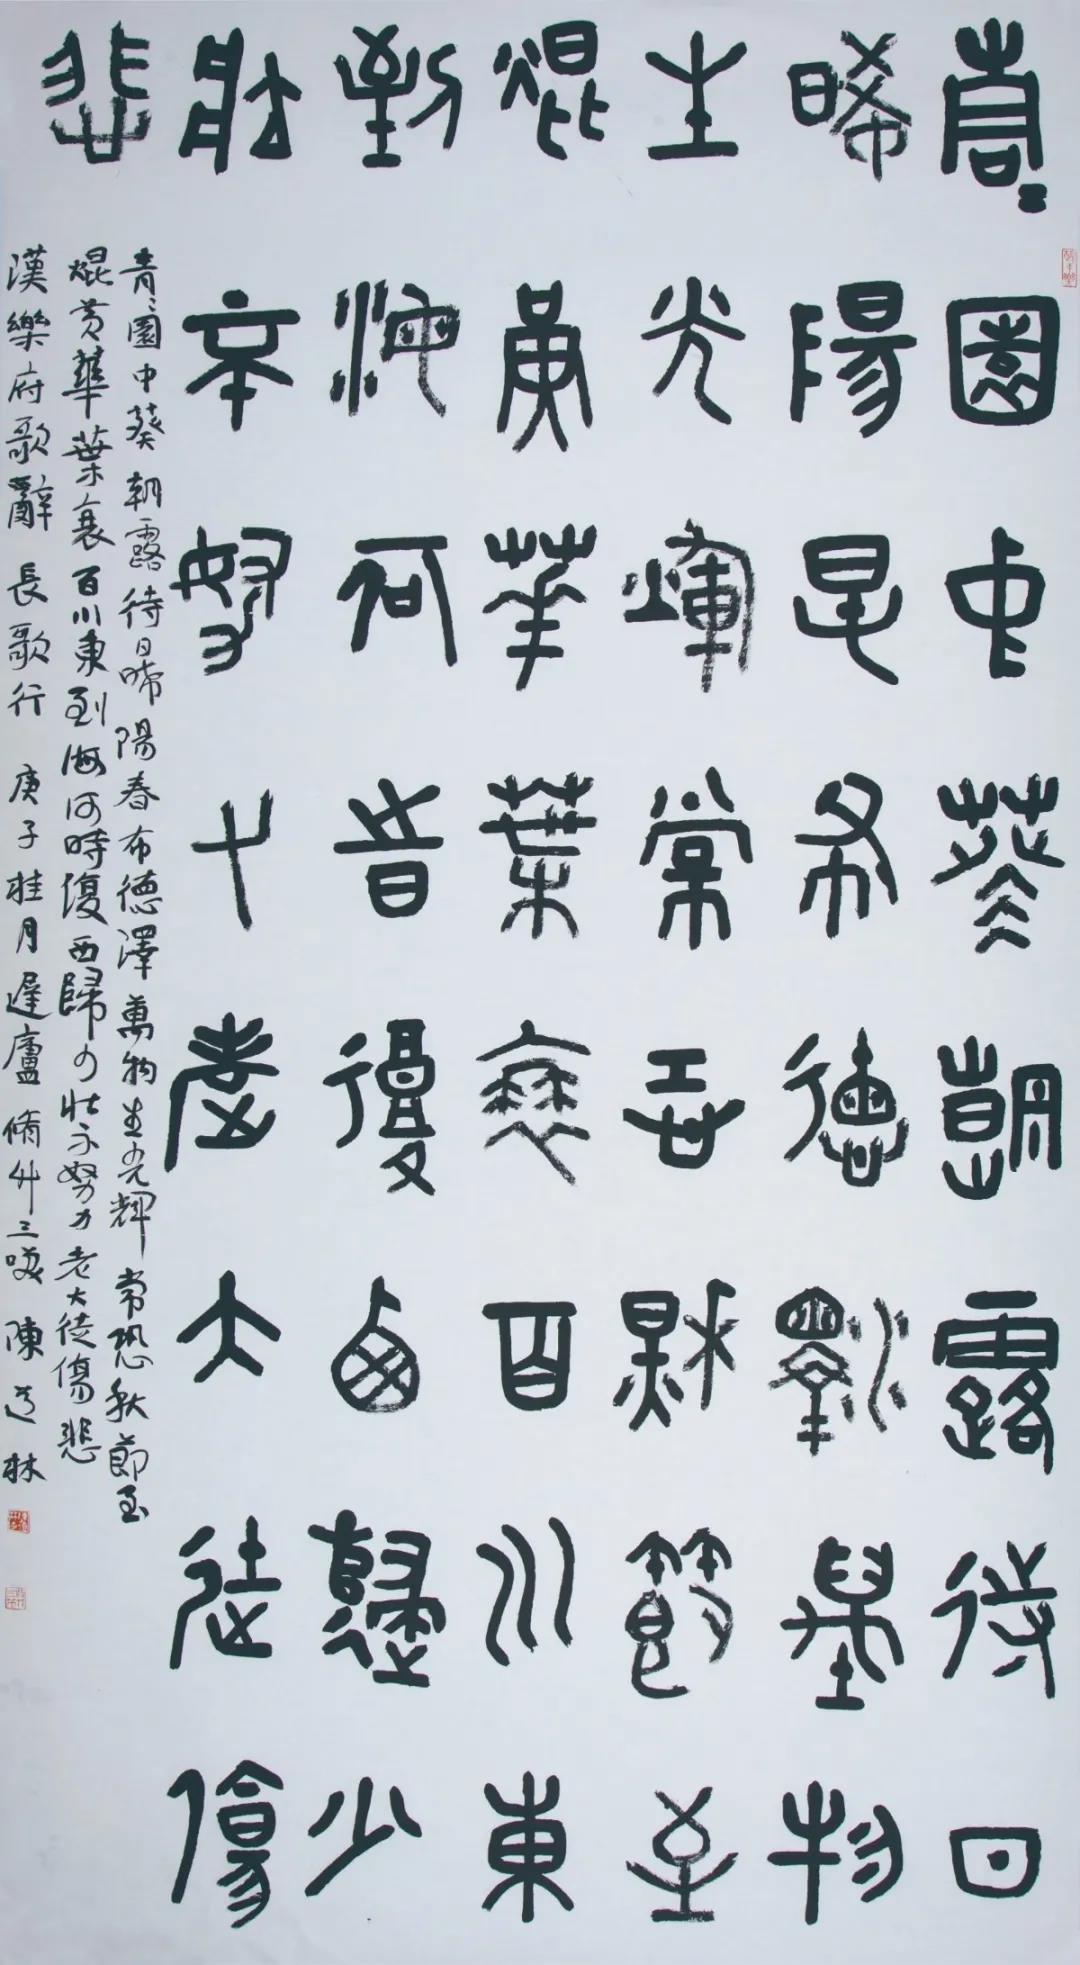 青〻園中葵朝露待日
晞陽春布德澤萬物
生光輝常恐秋節至
焜黃華葉衰百川東
到海何時復西歸少
壯不努力老大徒傷
悲
青〻園中葵朝露待日晞陽春布德澤萬物生光輝常恐秋節至
焜黃華葉衰百川東到海何時復西歸少壯不努力老大徒傷悲
漢樂府歌辭長歌行 庚子桂月遲廬脩竹三嘆 陳道林